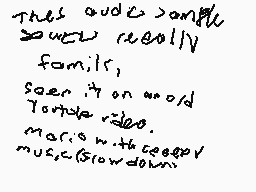 This audio sample
sounds really
familr,
seen it on an old
Youtube video.
Mario with creepy
music (slow down)